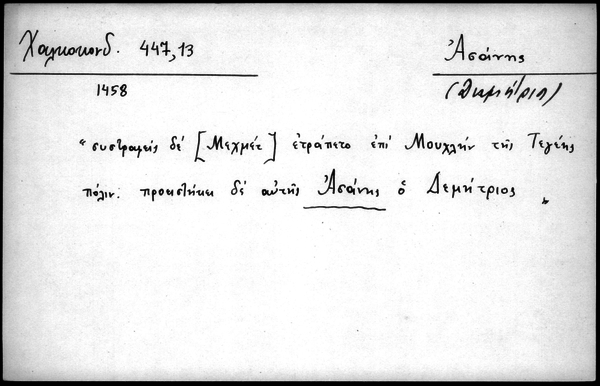 Χαλκοκονδ. 447,13
Ἀσάνης
1458
(Δημήτριος)
"συστραφείς δέ [Μεχμέτ] ἐτράπετο ἐπί Μουχλήν τῆς Τεγέης
πόλιν. προειστήκει δέ αὐτῆς Ἀσάνης ὁ Δεμήτριος "